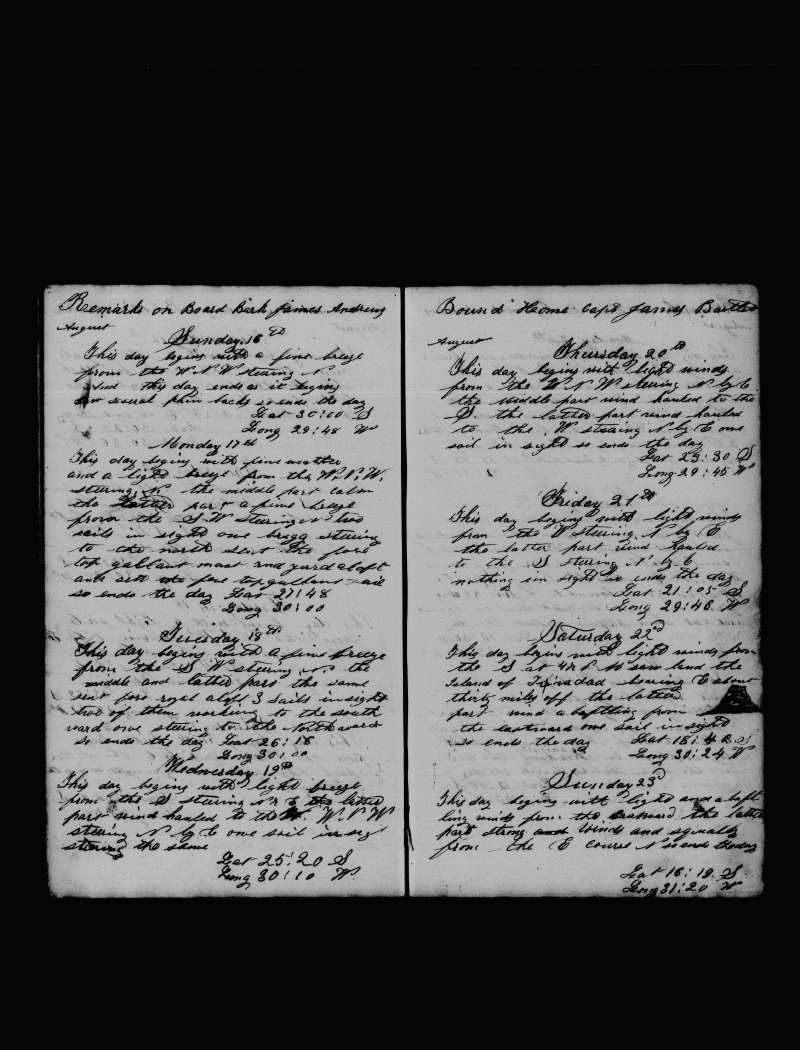 Remarks on Board Bark James Andrews
August
Sunday 16th
This day begins with a fine breeze
from the W N W steering N
And this day ends as it begins
saw several plain backs so ends the day
Lat 30:00 S
Long 29:48 W
Monday 17th
This day begins with fine weather
and a light breeze from the W.N.W.
steering N the middle part calm
the latter part a fine breeze
from the S W steering N two
sails in sight one brigg steering
to the north sent the fore
top gallant mast and yard aloft
and set the fore top gallant sail
so ends the day Lat 27:48
Long 30:00
Tuesday 18th
This day begins with a fine breeze
from the S W steering N the
middle and latter part the same
sent fore royal aloft 3 sails in sight
two of them working to the south
ward one steering to the Northward
so ends the day Lat 26:18
Long 30:00
Wednesday 19th
This day begins with light breeze
from the S steering N b E the latter
part wind hauled to the W. N W
steering N by E one sail in sigt
steering the same
Lat 25:20 S
Long 30:10 W
Bound Home Capt James Bartlet
August
Thursday 20th
This day begins with light winds
from the W N W steering N by E
the middle part wind hauled to the
S. the latter part wind hauled
to the W steering N by E one
sail in sight so ends the day
Lat 23:30 S
Long 29:45 W
Friday 21th
This day begins with light winds
from the W steering N by E
the latter part wind hauled
to the S steering N by E
nothing in sight so ends the day
Lat 21:05 S
Long 29:46 W
Saturday 22d
This day begins with light winds from
the S at 4 h P M saw land the
Island of Trinadad bearing E about
thirty miles off the latter
part wind a baffling from
the eastward one sail in sight
so ends the day Lat 18:42 S
Long 30:24 W
Sunday 23d
This day begins with light and a baff
ling winds from the eastward the latter
part strong winds and squally
from the E course N so ends the day
Lat 16:19 S
Long 31:20 W